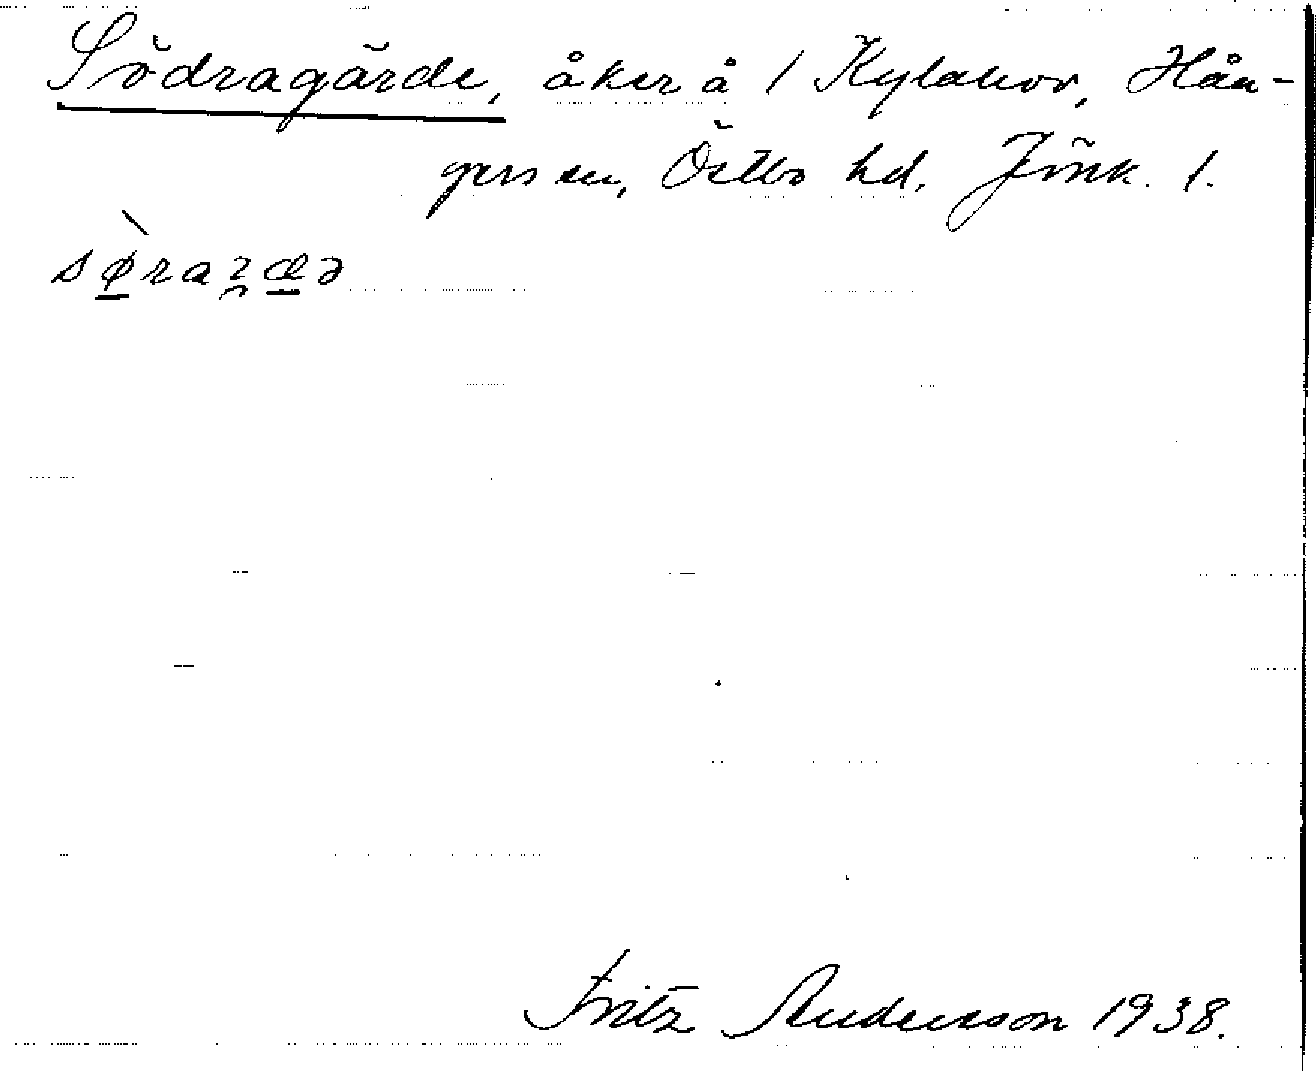 Södragärde, åker å 1 Kylahov, Hån-
gers sn, Östbo hd. Jönk. l.
Fritz Anderson 1938.